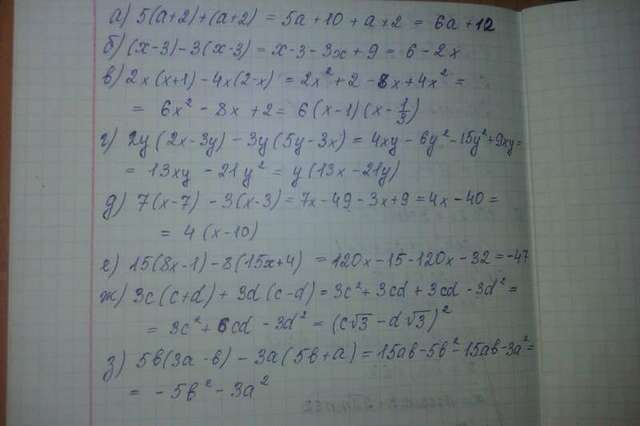 а) 5(a+2)+(a+2) = 5a+10+a+2 = 6a+12
б) (x-3)-3(x-3) = x-3-3x+9 = 6-2x
в) 2x(x+1)-4x(2-x) = 2x²+2-8x+4x² =
= 6x²-8x+2 = 6(x-1)(x-1/3)
г) 2y(2x-3y)-3y(5y-3x) = 4xy-6y²-15y²+9xy=
= 13xy-21y² = y(13x-21y)
д) 7(x-7)-3(x-3) = 7x-49-3x+9 = 4x-40 =
= 4(x-10)
е) 15(8x-1)-8(15x+4) = 120x-15-120x-32 = -47
ж) 3c(c+d)+3d(c-d) = 3c²+3cd+3cd-3d² =
= 3c²+6cd-3d² = (c√3-d√3)²
з) 5b(3a-b)-3a(5b+a) = 15ab-5b²-15ab-3a²=
= -5b²-3a²